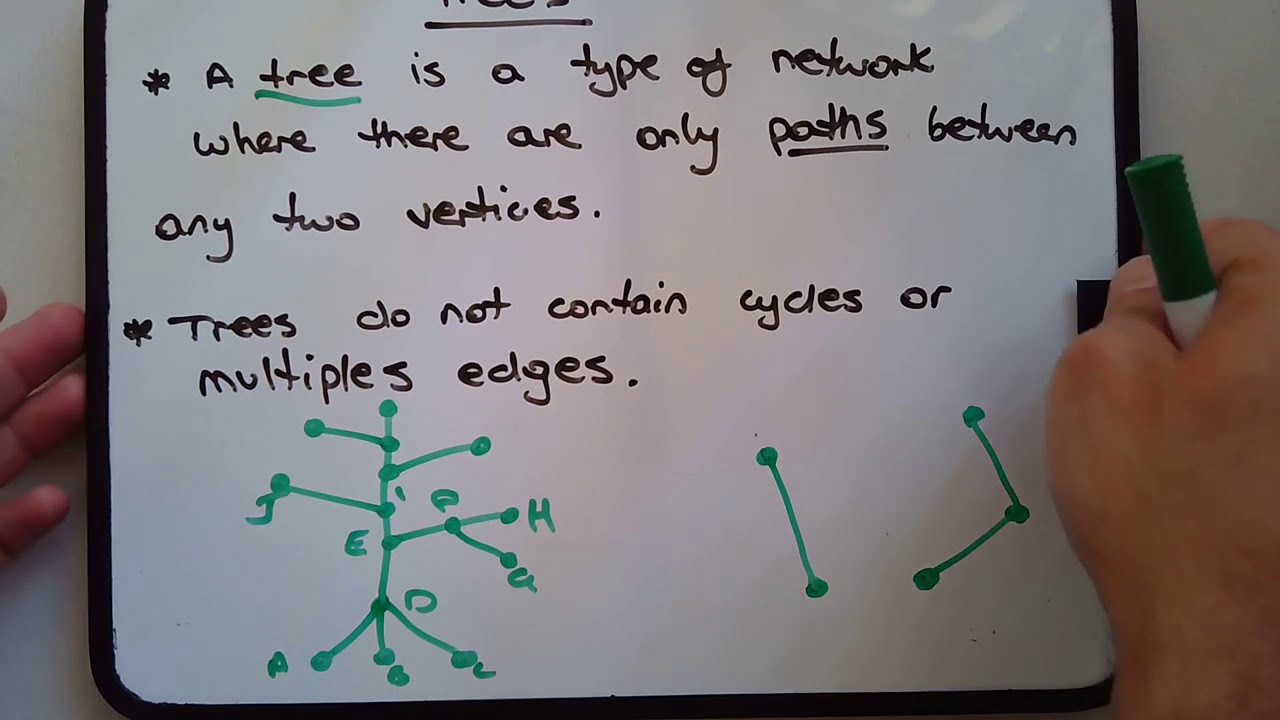 Trees
* A tree is a type of network
where there are only paths between
any two vertices.
* Trees do not contain cycles or
multiples edges.
J
I
F
H
E
G
D
A
B
C